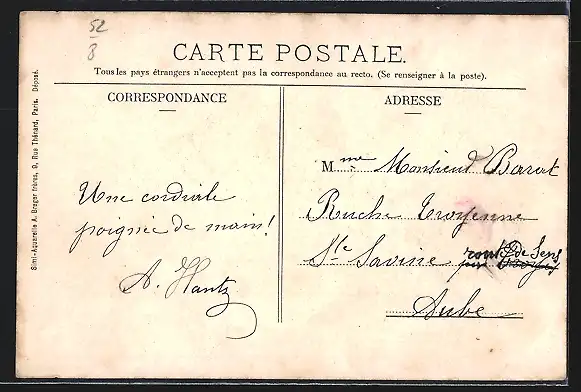 52
8
CARTE POSTALE.
Tous les pays étrangers n'acceptent pas la correspondance au recto. (Se renseigner à la poste).
CORRESPONDANCE
Une cordiale
poignée de mains!
A. Hantz
ADRESSE
Mme Monsieur Barat
Ruche Troyenne
Ste Savine route de Sens
Aube
Simi-Aquarelle A. Breger frères, 9, Rue Thénard, Paris. Déposé.